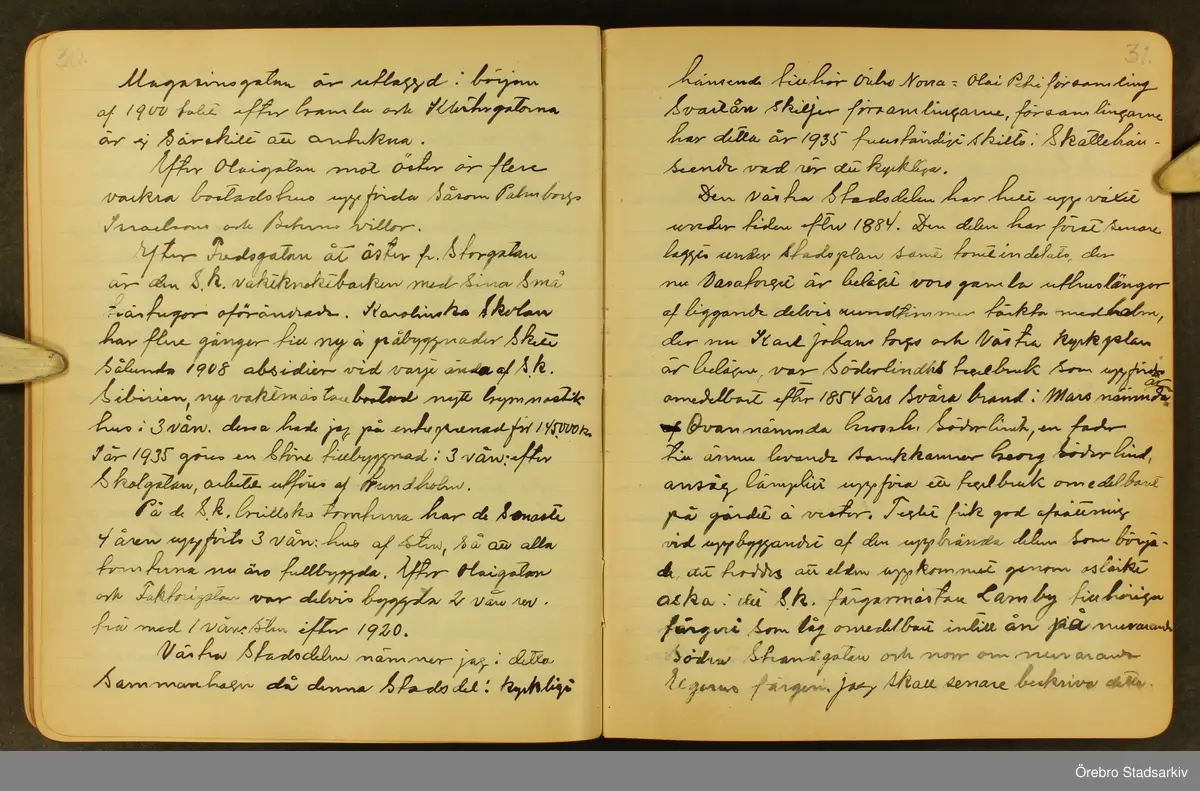 30.
Magasinsgatan är utlaggd i början
af 1900 talet efter Gamla och Klostergatorna
är ej särskilt att anteckna.
Efter Olaigatan mot öster är flere
vackra bostadshus uppförda såsom Palmborgs
Israelsons och Behrns villor.
Efter Fredsgatan åt öster fr. Storgatan
är den s.k. vaktknektbacken med sina små
trästugor oförändrade. Karolinska Skolan
har flere gånger till ny å påbyggnader skett
sålunda 1908 absidier vid varje ända af s.k.
Sibirien, ny vaktmästarebostad nytt Gymnastik
hus i 3 vån. dessa hade jag på entreprenad för 145.000 kr
I år 1935 göres en större tillbyggnad i 3 vån: efter
Skolgatan, arbetet utföres af Trundholm.
På de s.k. tomterna har de senaste
4 åren uppförts 3 vån: hus af sten, så att alla
tomterna nu äro fullbyggda. Efter Olaigatan
och Faktorigatan var delvis byggda 2 vån rev.
trä med 1 vån: sten efter 1920.
Västra Stadsdelen nämner jag i detta
sammanhagn då denna Stadsdel i kyrkligt
31.
hänsende tillhör Örebro Norra = Olai Petri församling
Svartån skiljer församlingarne, församlingarne
har detta år 1935 fullständigt skilts i Skattehän-
seende vad rör det kyrkliga.
Den Västra Stadsdelen har helt uppväxt
under tiden efter 1884. Den delen har först senare
laggts under stadsplan samt tomtindelats, der
nu Vasatorget är beläget vors gamla uthuslängor
af liggande delvis rundtimmer täckta med halm,
der nu Karl Johans torgs och Västra Kyrkplan
är belägne, var Söderlindhs tegelbruk som uppfördes
omedelbart efter 1854 års svåra brand i Mars nämnda år
Ovannämnda Söderlindh, en fader
till ännu levande Georg Söderlind,
ansåg lämpligt uppföra ett tegelbruk omedelbart
på gärdet å vester. Teglet fick god afsättning
vid uppbyggandet af den uppbrända delen som börja-
de, det troddes att elden uppkommit genom osläckt
aska i det s.k. färgarmästare Lamby tillhöriga
färgeri som låg omedelbart intill ån på nuvarande
Södra Strandgatan och norr om nuvarande
Elgerus färgeri, jag skall senare beskriva detta.
Örebro Stadsarkiv